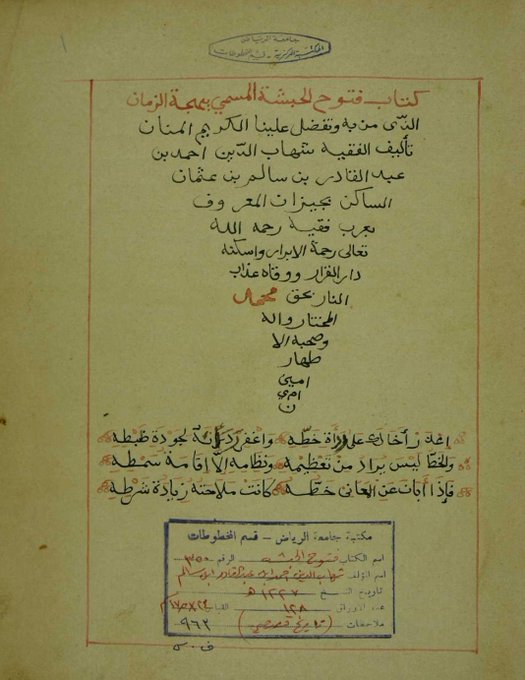 جامعة الرياض
المكتبة المركزية - قسم المخطوطات
كتاب فتوح الحبشة المسمي ببهجة الزمان
الذى من به وتفضل علينا الكريم المنان
تأليف الفقيه شهاب الدين احمد بن
عبد القادر بن سالم بن عثمان
الساكن بجيزان المعروف
بعرب فقيه رحمه الله
تعالى رحمة الابرار واسكنه
دار القرار ووقاه عذاب
النار بحق محمد
المختار واله
وصحبه الا
طهار
امين
امي
ن
اعذر أخاك على رداءة خطّه واغفر لجودة ضبطه
والخطّ ليس يراد من تعظيمه ونظامه إلّا اقامة سمطه
فإذا أبان عن المعانى خطّه كانت ملاحته زيادة شرطه
مكتبة جامعة الرياض - قسم المخطوطات
اسم الكتاب فتوح الحبشه الرقم ٣٥٠
اسم المؤلف شهاب الدين أحمد بن عبد القادر بن سالم
تاريخ النسخ ١٢٢٧ هـ
عدد الاوراق ١٢٨ القياس
ملاحظات ( تاريخ ) ٩٦٣